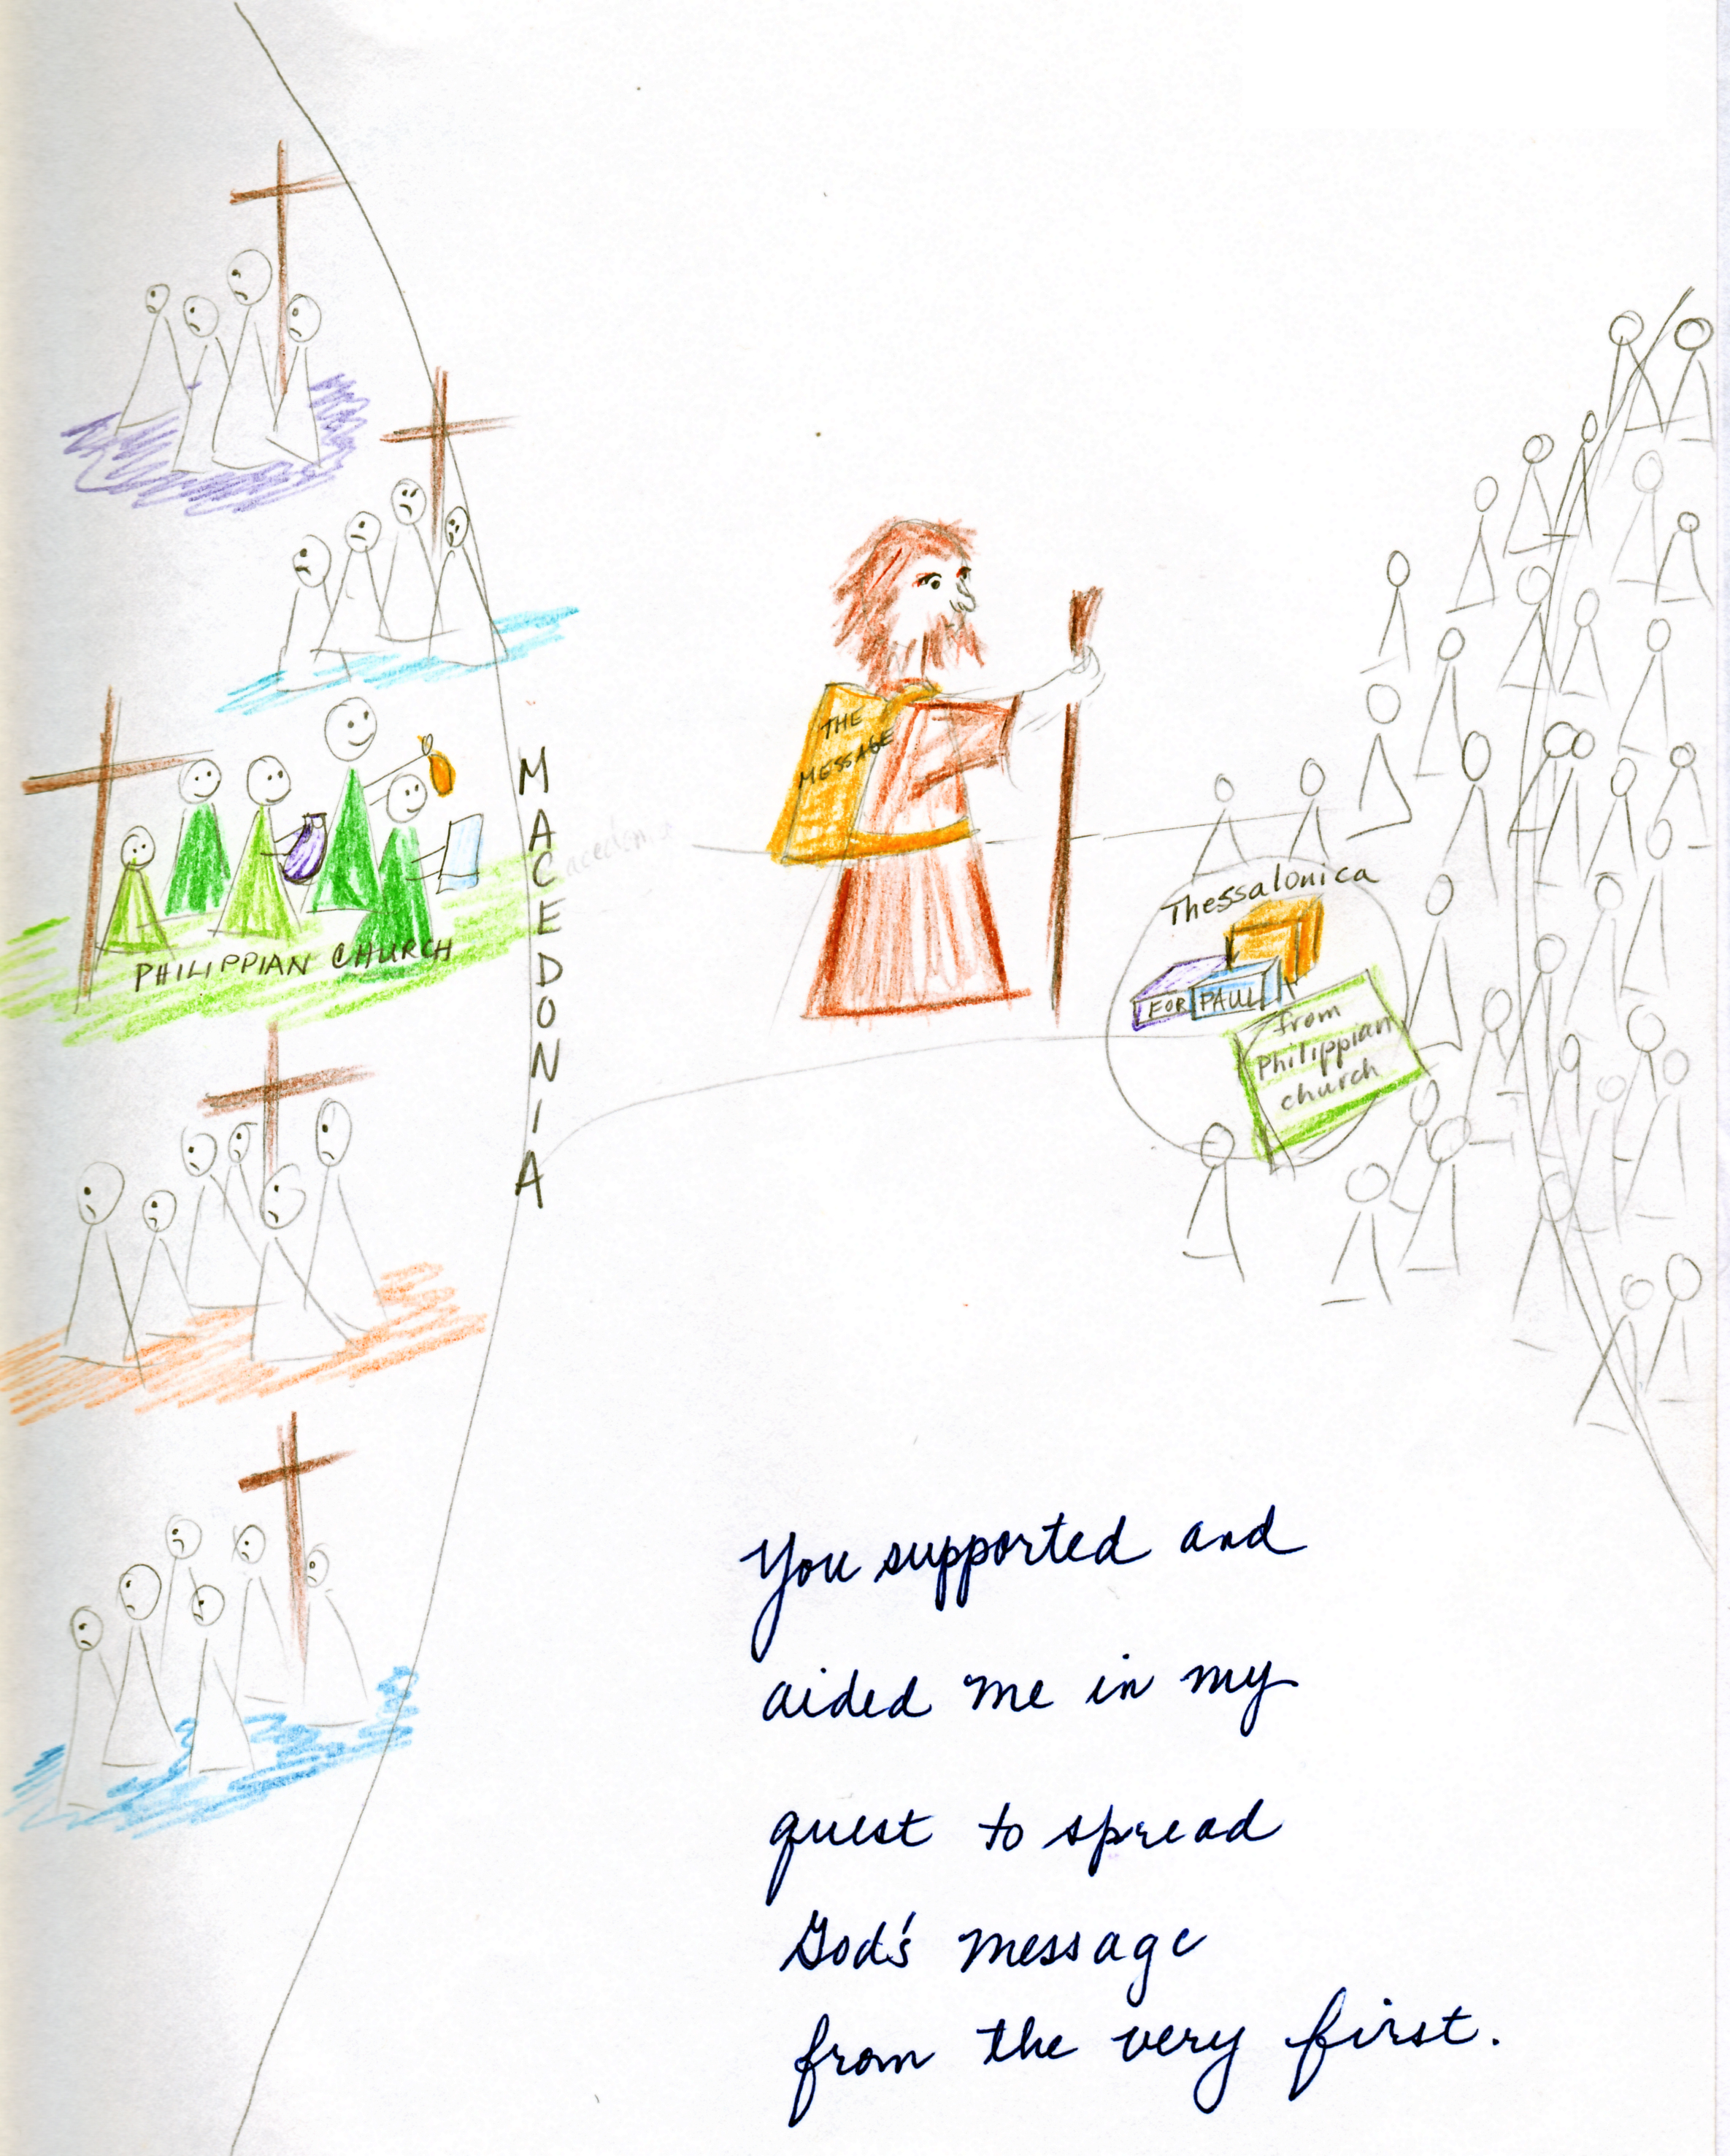 THE
MESSAGE
MACEDONIA
Thessalonica
PHILIPPIAN CHURCH
FOR PAUL
from
Philippian
church
You supported and
aided me in my
quest to spread
God's message
from the very first.